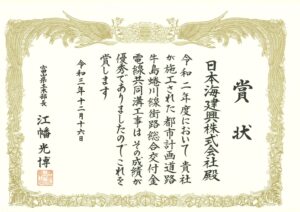 賞状
日本海建興株式会社殿
令和二年度において貴社
が施工された都市計画道路
牛島蜷川線街路総合交付金
電線共同溝工事はその成績が
優秀でありましたのでこれを
賞します
令和三年十二月十六日
富山県土木部長
江幡光博